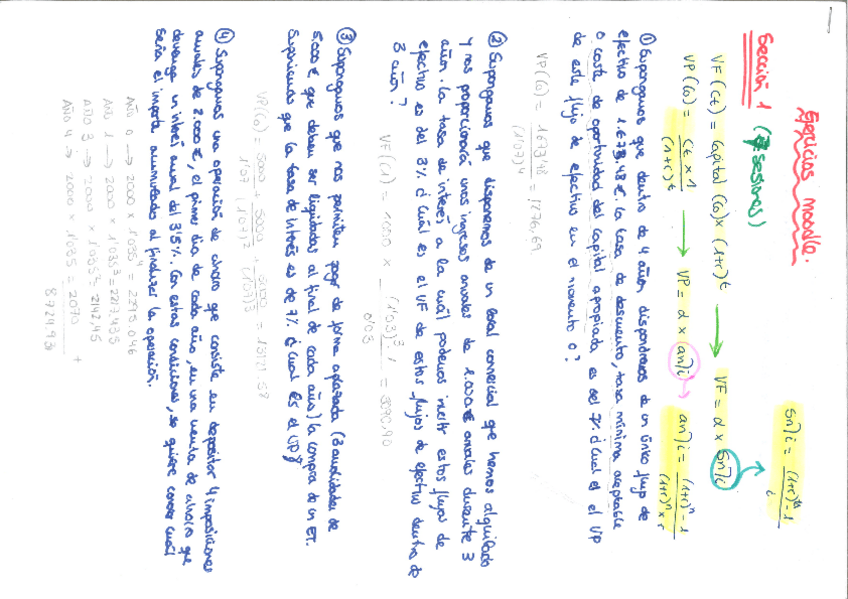 Ejercicios moodle.
Sección 1 (7 sesiones)
VF (Ct) = Capital (Co) × (1+r)^t → VF = α × Sn⌉i → Sn⌉i = (1+r)^n - 1 / i
VP (Co) = Ct × 1 / (1+r)^t → VP = α × an⌉i → an⌉i = (1+r)^n - 1 / (1+r)^n × r
① Supongamos que dentro de 4 años dispondremos de un único flujo de
efectivo de 1.673,48 €. La tasa de descuento, tasa mínima aceptable
o coste de oportunidad del capital apropiada es del 7%. ¿Cual es el VP
de este flujo de efectivo en el momento 0?
VP (Co) = 1673,48 / (1'07)^4 = 1276,69
② Supongamos que disponemos de un local comercial que hemos alquilado
y nos proporcionará unos ingresos anuales de 1.000€ anuales durante 3
años. La tasa de interés a la cuál podemos invertir estos flujos de
efectivo es del 3% ¿Cuál es el VF de estos flujos de efectivo dentro de
3 años?
VF (1) = 1000 × (1'03)^3 - 1 / 0'03 = 3090,90
③ Supongamos que nos permiten pagar de forma aplazada (3 anualidades de
5.000€ que deben ser liquidadas al final de cada año) la compra de un ET.
Supongamos que la tasa de interés es de 7% ¿Cuál es el VP?
VP (Co) = 5000 / 1'07 + 5000 / (1'07)^2 + 5000 / (1'07)^3 = 13121,58
④ Supongamos una operación de ahorro que consiste en depositar 4 imposiciones
anuales de 2.000€, el primer día de cada año, en una cuenta de ahorro que
devenga un interés anual del 3'5%. Con estas condiciones, se quiere conocer cuál
sería el importe acumulado al finalizar la operación.
Año 0 → 2000 × 1'035^4 = 2295,046
Año 1 → 2000 × 1'035^3 = 2217,435
Año 3 → 2000 × 1'035^2 = 2142,45
Año 4 → 2000 × 1'035 = 2070 +
8724,93